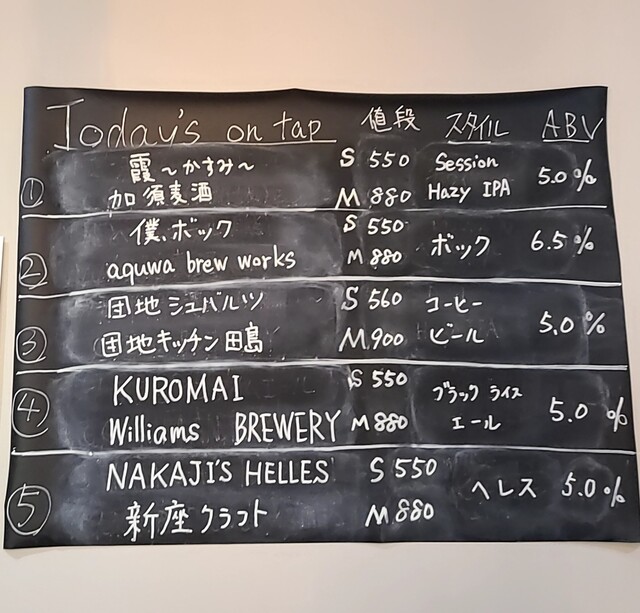 Today's on tap 値段 スタイル ABV
① 霞〜かすみ〜 S 550 Session 5.0%
加須麦酒 M 880 Hazy IPA
② 僕、ボック S 550 ボック 6.5%
aquwa brew works M 880
③ 団地シュバルツ S 560 コーヒー 5.0%
団地キッチン田島 M 900 ビール
④ KUROMAI S 550 ブラックライス 5.0%
Williams BREWERY M 880 エール
⑤ NAKAJI'S HELLES S 550 ヘレス 5.0%
新座クラフト M 880